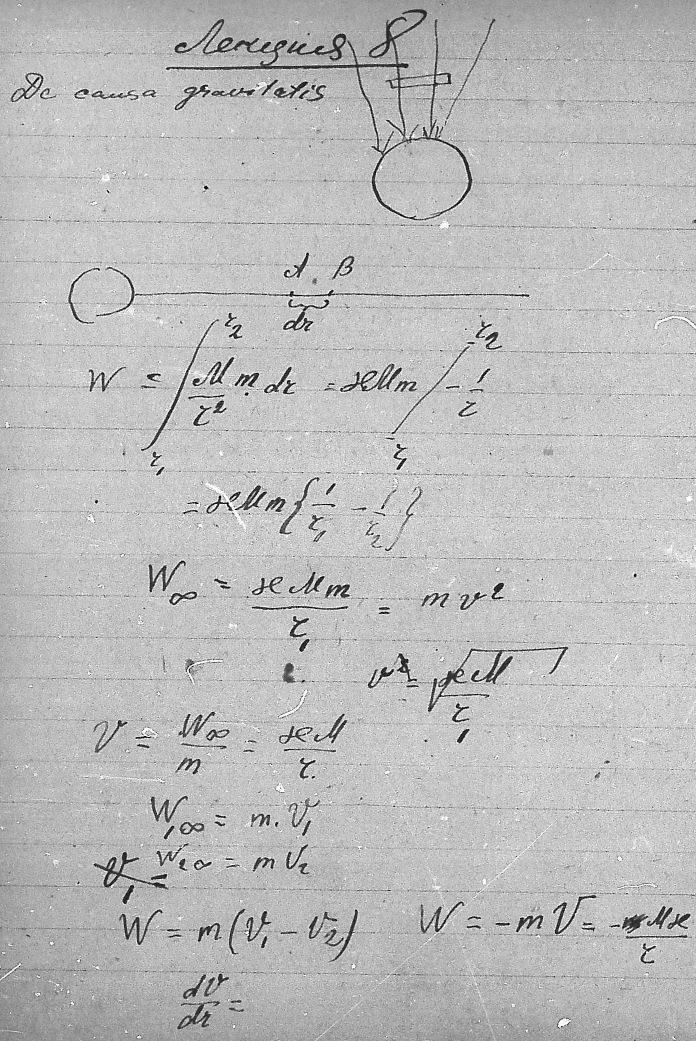 Лекция 8
De causa gravitatis
A B
dr
W = ∫_{r₁}^{r₂} Mm/r² · dr = ϰMm /_{r₁}^{r₂} - 1/r
= ϰMm {1/r₁ - 1/r₂}
W∞ = ϰMm/r₁ = mv²
v² = √ϰM/r₁
V = W∞/m = ϰM/r
W₁∞ = m.V₁
W₂∞ = mV₂
W = m(V₁ - V₂) W = -mV = -Mϰ/r
dV/dr =